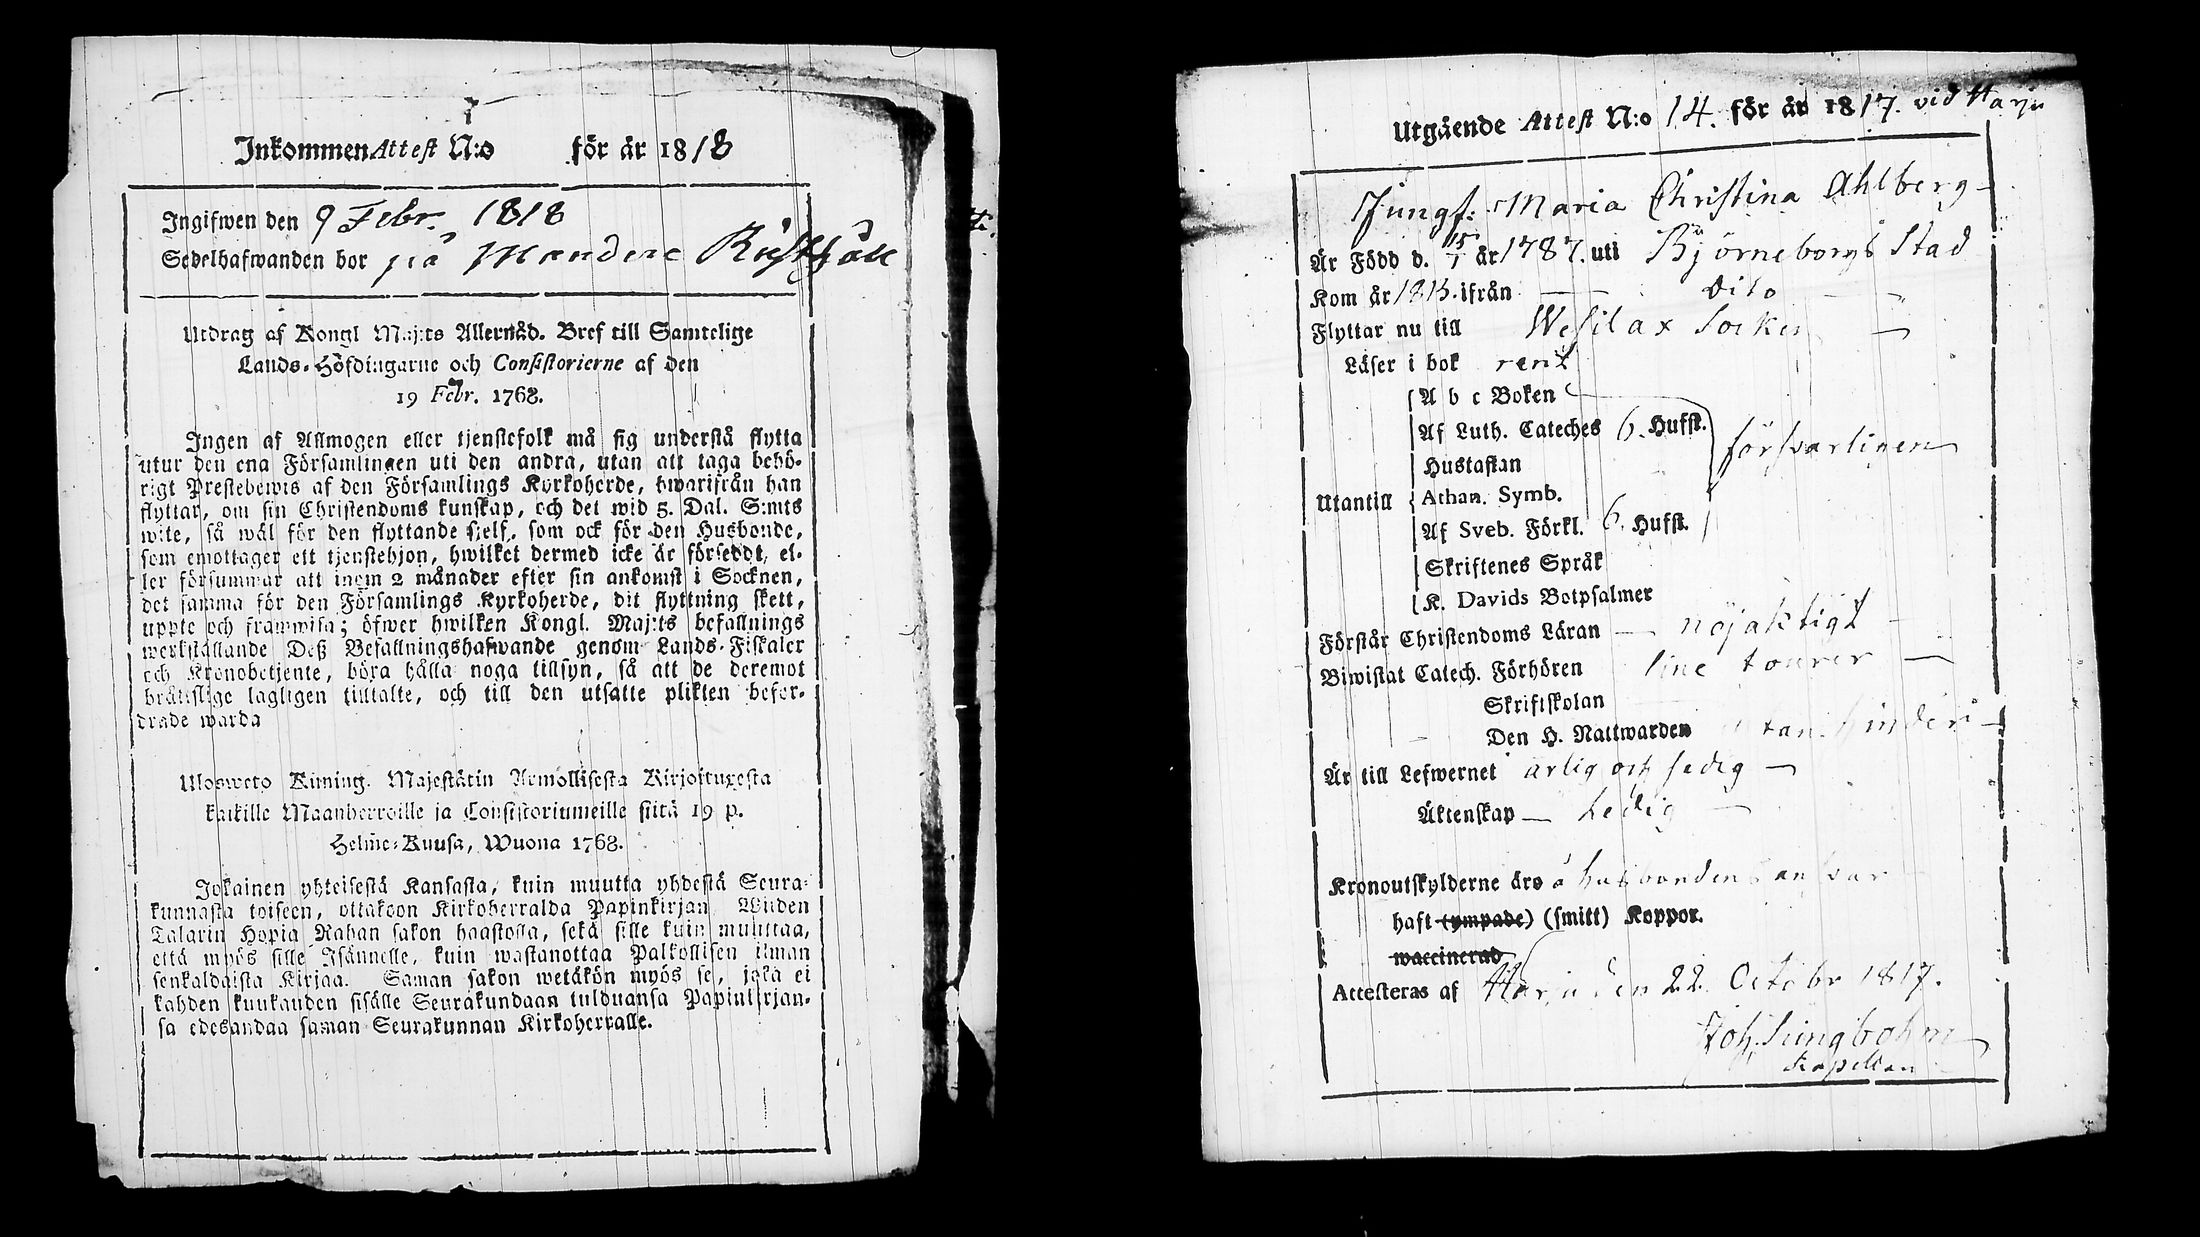 Inkommen Attest N:o för år 1818
Ingifwen den 9 Febr. 1818
Sedelhafwanden bor på Mandere Rusthåll
Utdrag af Kongl Maj:ts Allernåd. Bref till Samtelige
Lands-Höfdingarne och Consistorierne af den
19 Febr. 1768.
Ingen af Allmogen eller tjenstefolk må sig understå flytta
utur den ena Församlingen uti den andra, utan att taga behö-
rigt Prestebewis af den Församlings Kyrkoherde, hwarifrån han
flyttar, om sin Christendoms kunskap, och det wid 5. Dal. S:mts
wite, så wäl för den flyttande sjelf, som ock för den Husbonde,
som emottager ett tjenstehjon, hwilket dermed icke är försedt, el-
ler försummar att inom 2 månader efter sin ankomst i Socknen,
det samma för den Församlings Kyrkoherde, dit flyttning skett,
uppte och framwisa; öfwer hwilken Kongl. Maj:ts befallnings
werkställande Deß Befallningshafwande genom Lands-Fiskaler
och Kronobetjente, böra hålla noga tillsyn, så att de deremot
bråttslige lagligen tilltalte, och till den utsatte plikten befor-
drade warda
Ulosweto Kuning. Majestätin Armollisesta Kirjoituxesta
kaikille Maanherroille ja Consistoriumeille siitä 19 p.
Helme-Kuusa, Wuona 1768.
Jokainen yhteisestä Kansasta, kuin muutta yhdestä Seura-
kunnasta toiseen, ottakoon Kirkoherralda Papinkirjan Wiiden
Talarin Hopia Rahan sakon haastolla, sekä sille kuin muuttaa,
että myös sille Isännelle, kuin wastanottaa Palkollisen ilman
senkaldaista Kirjaa. Saman sakon wetäkön myös se, joka ei
kahden kuukauden sisälle Seurakundaan tulduansa Papinkirjan-
sa edesandaa saman Seurakunnan Kirkoherralle.
Utgående Attest N:o 14. för år 1817. vid Harju
Jungf. Maria Christina Ahlberg
Är Född d. 15/1 år 1787. uti Björneborgs Stad
Kom år 1815. ifrån dito
Flyttar nu till Wesilax Socken
Läser i bok rent
A b c Boken
Af Luth. Cateches 6. Hufst.
försvarligen
Hustaflan
Utantill Athan. Symb.
Af Sveb. Förkl. 6. Hufst.
Skriftenes Språk
K. Davids Botpsalmer
Förstår Christendoms Läran nöjaktigt
Biwistat Catech. Förhören sine tourer
Skriftskolan
Den H. Nattwarden utan hinder
Är till Lefwernet ärlig och sedig
Äktenskap ledig
Kronoutskylderne äro å husbondens answar
haft (ympade) (smitt) Koppor.
waccinerad
Attesteras af Harju den 22 Octobr 1817.
Joh. Ljungbohm
Kapellan